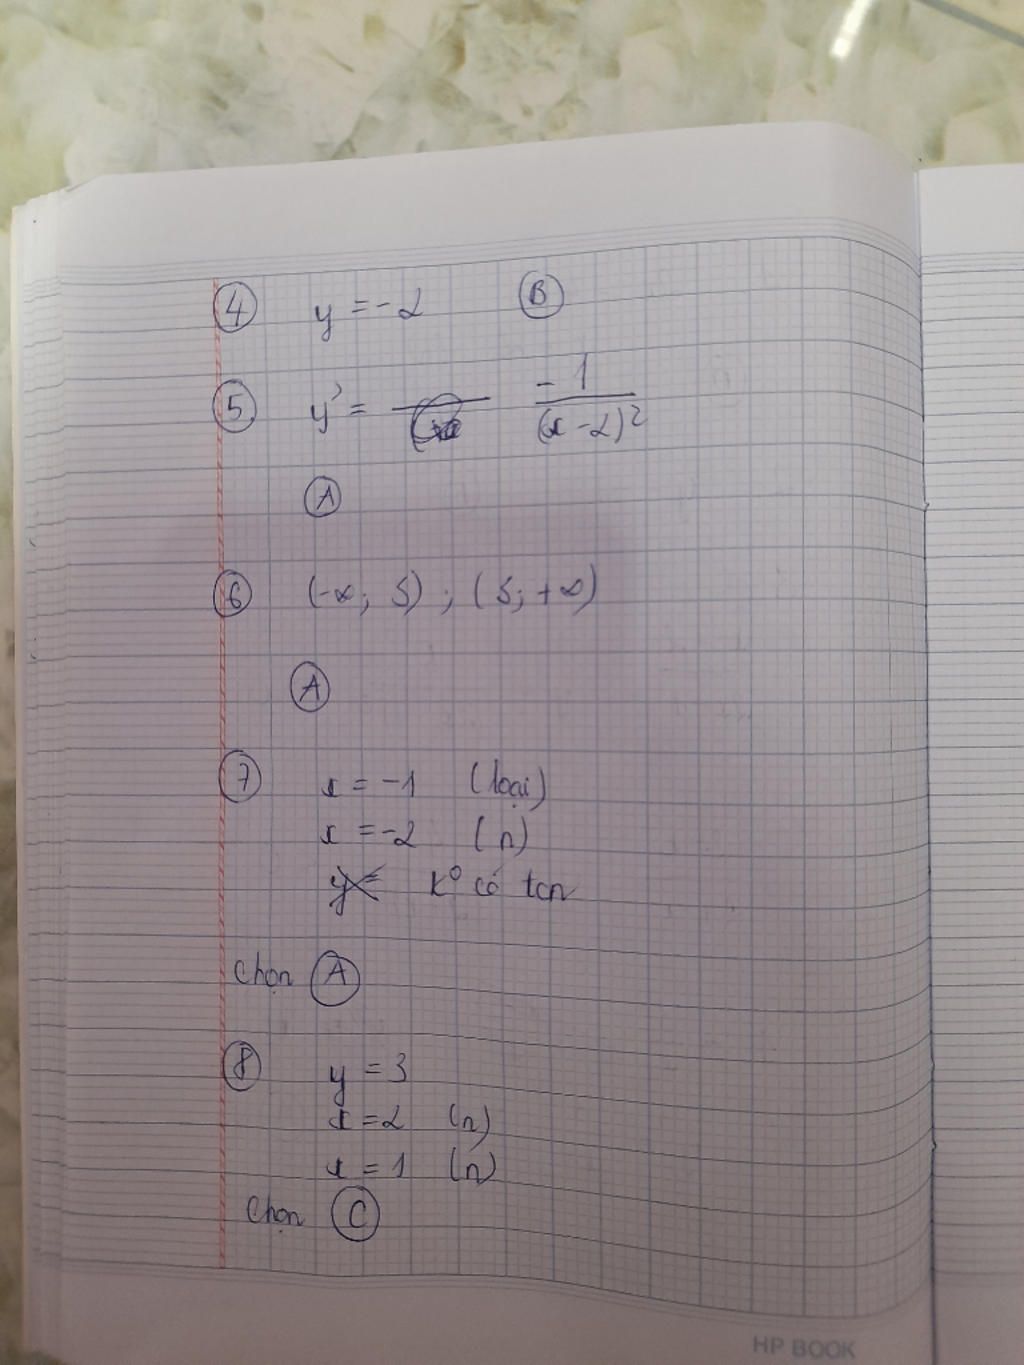 4 y = -2 B
5 y' = -1/(x-2)²
A
6 (-∞; 5) ; (5; +∞)
A
7 x = -1 (loại)
x = -2 (n)
y= k⁰ có tcn
Chọn A
8 y = 3
x = 2 (n)
x = 1 (n)
Chọn C
HP BOOK